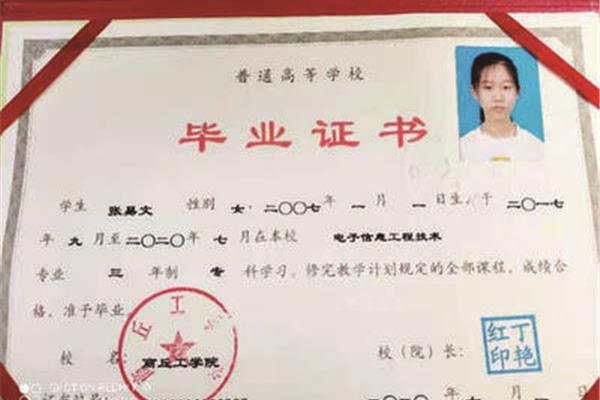 普通高等学校
毕业证书
学生 张易文 性别 女，二〇〇七年 一 月 一 日生，于 二〇一七
年 九 月至 二〇二〇年 七 月在本校 电子信息工程技术
专业 三 年制 专 科学习，修完教学计划规定的全部课程，成绩合
格，准予毕业。
校 名： 商丘工学院 校（院）长： 丁艳红印
二〇二〇